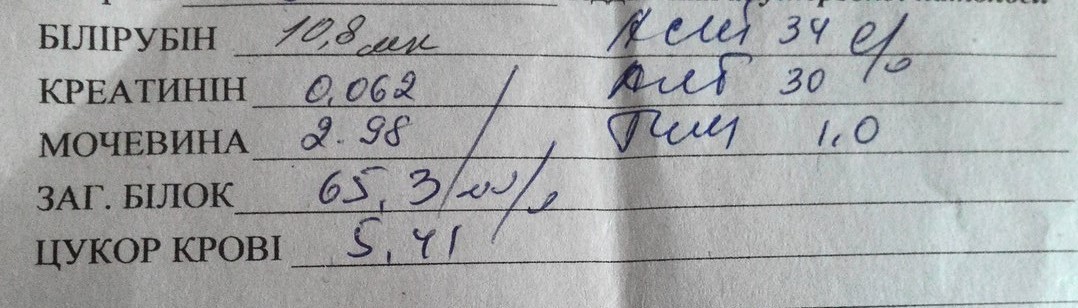 БІЛІРУБІН 10,8 мк Асат 34 е/
КРЕАТИНІН 0,062 Алт 30
МОЧЕВИНА 2.98 Тим 1,0
ЗАГ. БІЛОК 65,3
ЦУКОР КРОВІ 5,41